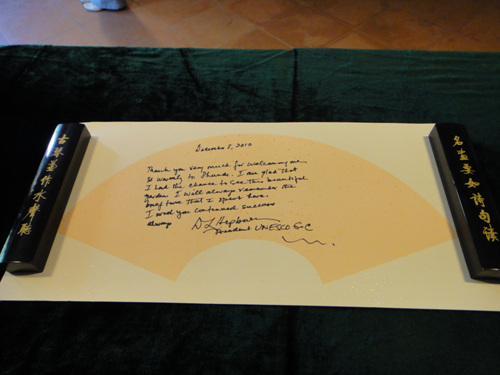 December 8, 2010
Thank you very much for welcoming me
so warmly to. I am glad that
I had the chance to see this beautiful
garden. I will always remember the
brief time that I spent here.
I wish you continued success
always
D L Hepburn
President UNESCO G-C
古琴兼作水聲聽
名畫要如詩句讀